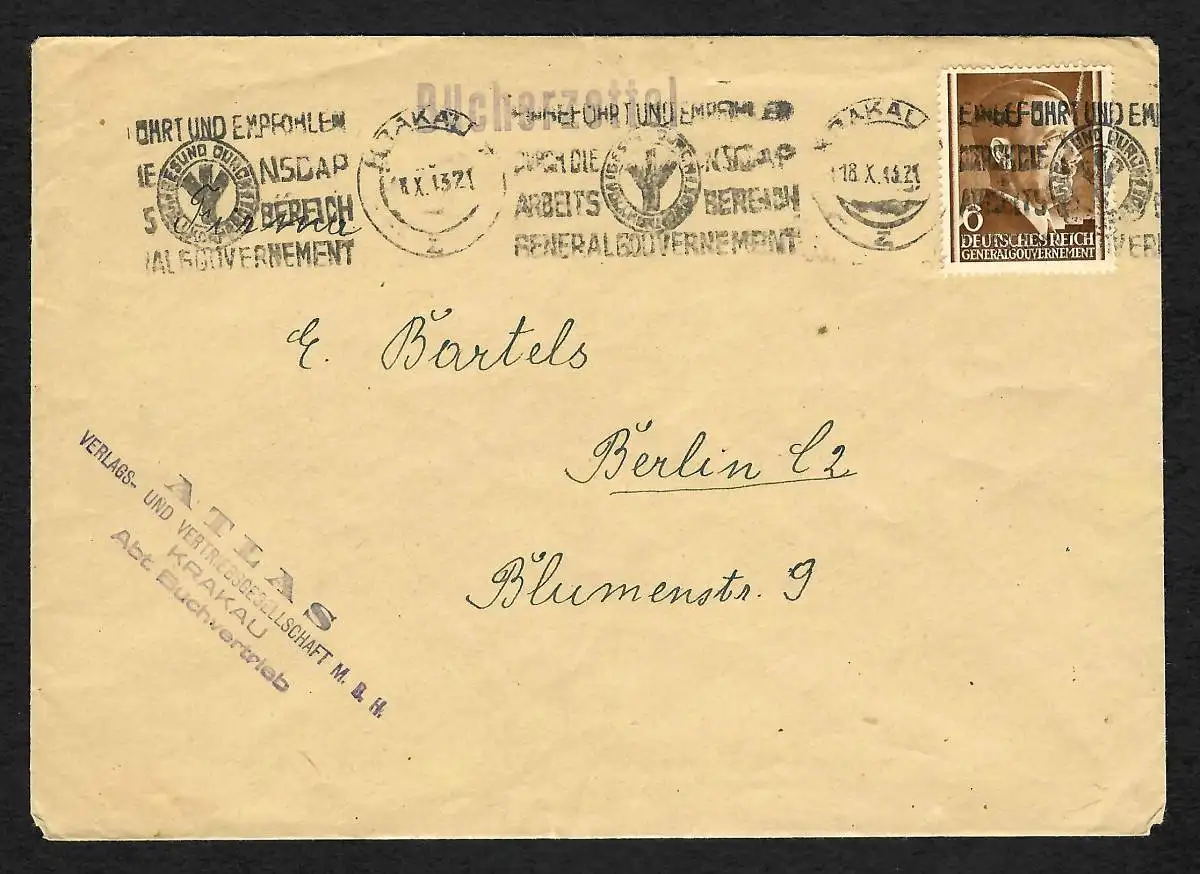 Bücherzettel
FÜHRT UND EMPFOHLEN
NSDAP
BEREICH
GENERALGOUVERNEMENT
Firma
KRAKAU
18.X.43.21
2
EINGEFÜHRT UND EMPFOHLEN
DURCH DIE NSDAP
ARBEITSBEREICH
GENERALGOUVERNEMENT
KRAKAU
18.X.43.21
2
EINGEFÜHRT UND EMP
DURCH DIE
ARBEITS
6
DEUTSCHES REICH
GENERALGOUVERNEMENT
E. Bartels
Berlin C2
Blumenstr. 9
ATLAS
VERLAGS- UND VERTRIEBSGESELLSCHAFT M. B. H.
KRAKAU
Abt. Buchvertrieb